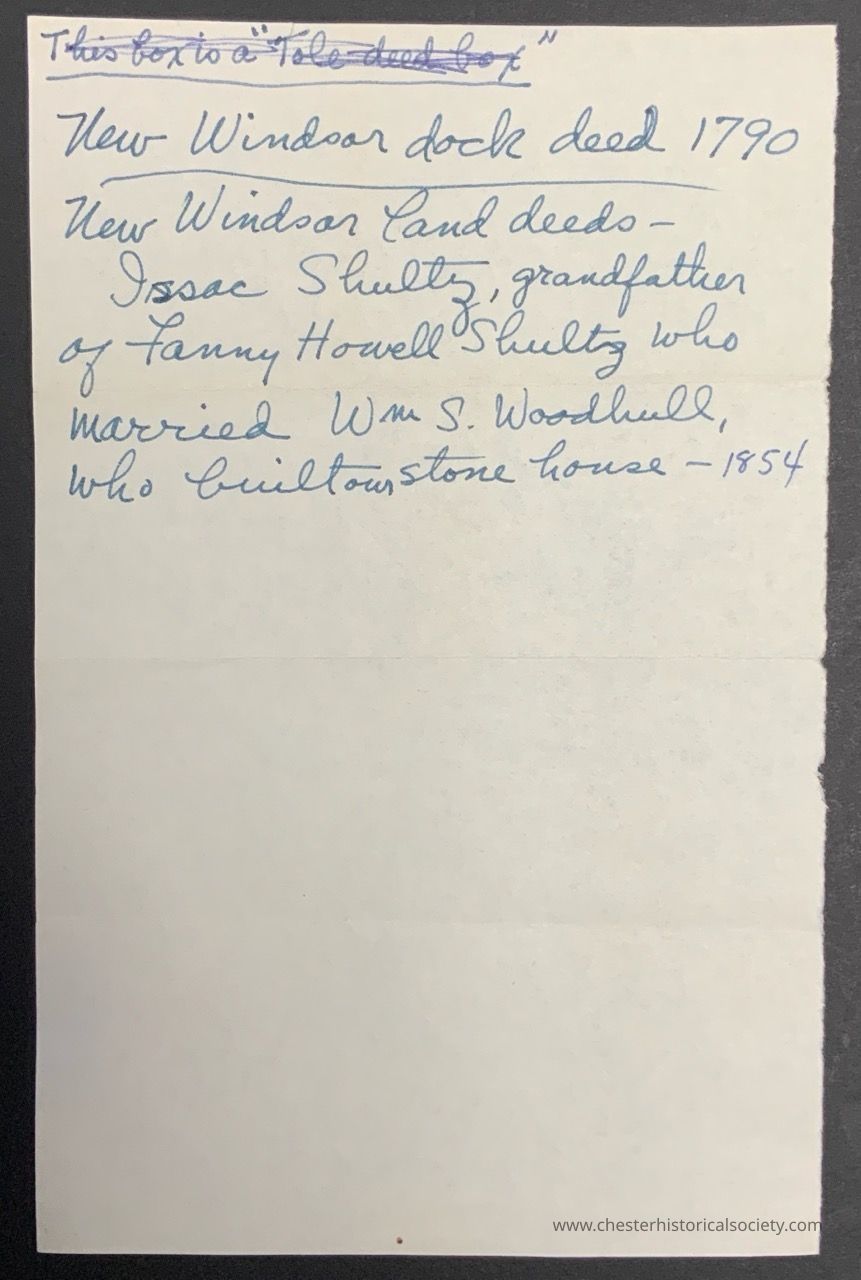 This box is a "Tole deed box"
New Windsor dock deed 1790
New Windsor Land deeds -
Issac Shultz, grandfather
of Fanny Howell Shultz who
married Wm S. Woodhull,
who built our stone house - 1854
www.chesterhistoricalsociety.com